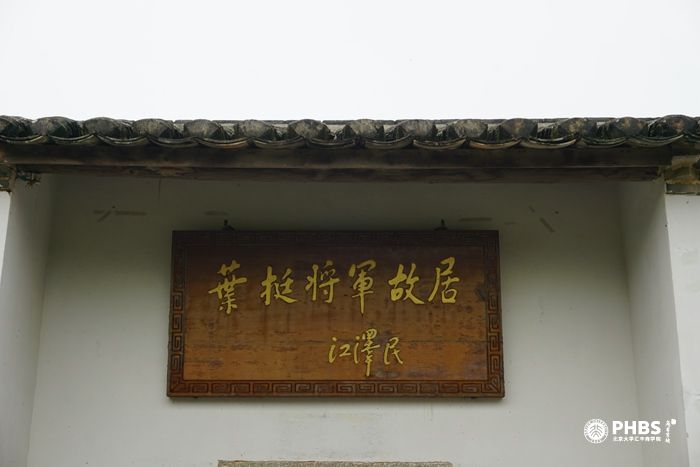 葉挺将軍故居
江澤民
PHBS
北京大学汇丰商学院